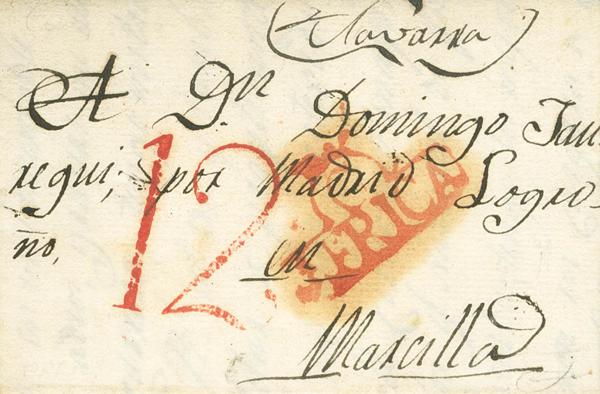 (Navarra)
A Dn Domingo Jau-
regui, por Madrid Logro-
ño,
en
Marcilla
12
AFRICA